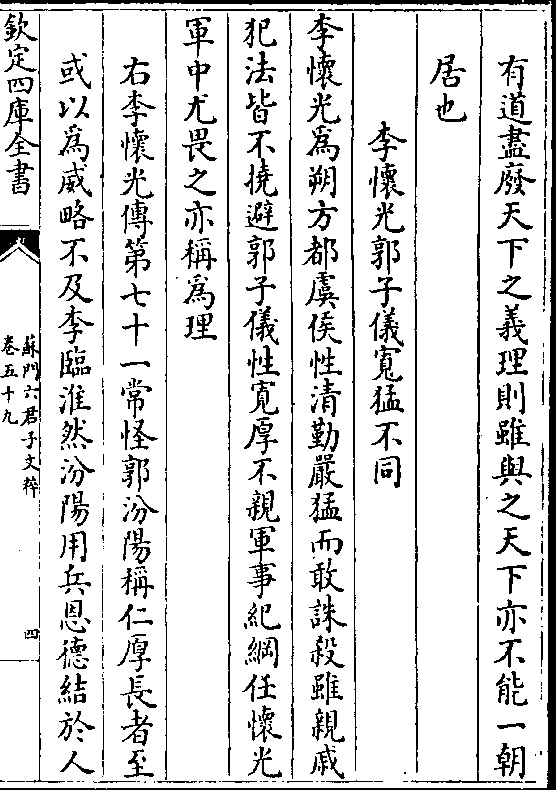 有道盡廢天下之義理則雖與之天下亦不能一朝
居也
李懷光郭子儀寬猛不同
李懷光為朔方都虞侯性清勤嚴猛而敢誅殺雖親戚
犯法皆不撓避郭子儀性寬厚不親軍事紀綱任懷光
軍中尤畏之亦稱為理
右李懷光傳第七十一常怪郭汾陽稱仁厚長者至
或以為威略不及李臨淮然汾陽用兵恩德結於人
欽定四庫全書
蘇門六君子文粹
卷五十九
四